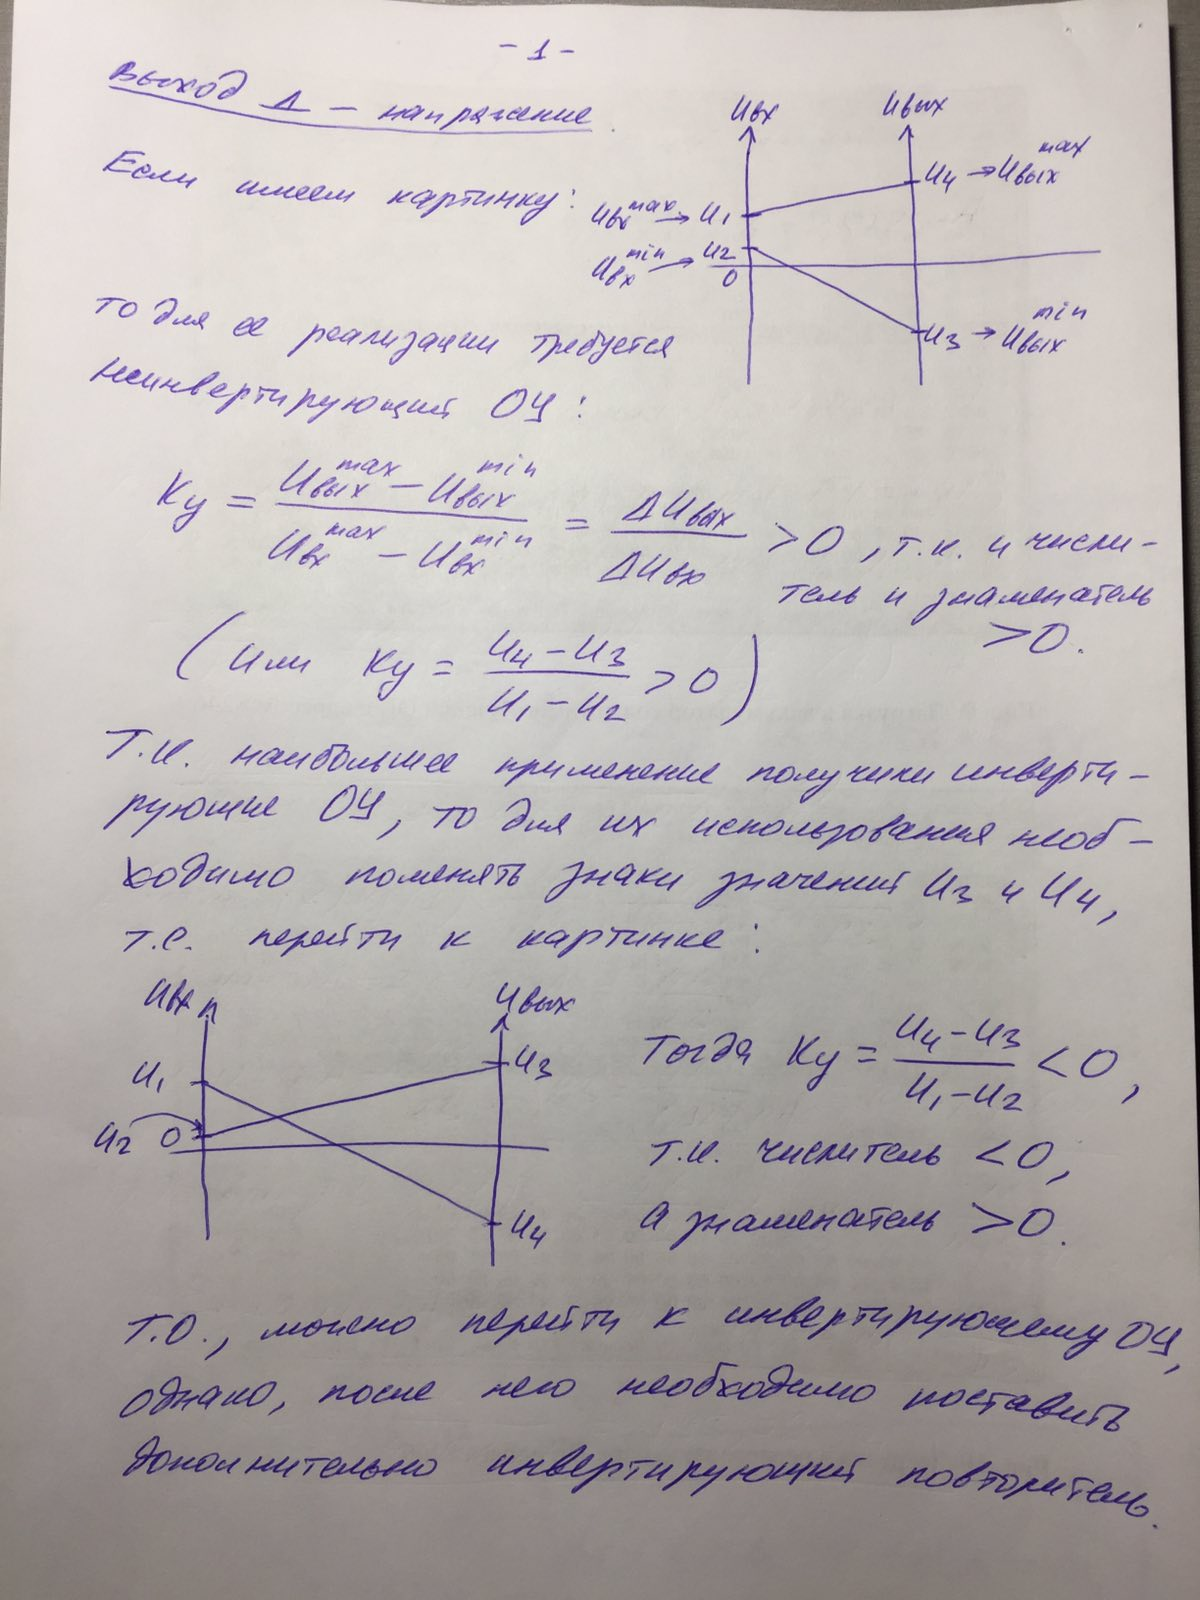 - 1 -
Выход Δ – напряжение.
Если имеем картинку:
Uвх Uвых
Uвх max → U1 U4 → Uвых max
Uвх min → U2
0
U3 → Uвых min
то для ее реализации требуется
неинвертирующий ОУ:
Ку = (Uвых max – Uвых min) / (Uвх max – Uвх min) = ΔUвых / ΔUвх > 0, т.к. и числи-
тель и знаменатель
> 0.
(или Ку = (U4 – U3) / (U1 – U2) > 0)
Т.к. наибольшее применение получили инверти-
рующие ОУ, то для их использования необ-
ходимо поменять знаки значений U3 и U4,
т.е. перейти к картинке:
Uвх Uвых
U1 U3
U2 0
U4
Тогда Ку = (U4 – U3) / (U1 – U2) < 0,
т.к. числитель < 0,
а знаменатель > 0.
Т.О., можно перейти к инвертирующему ОУ,
однако, после него необходимо поставить
дополнительно инвертирующий повторитель.